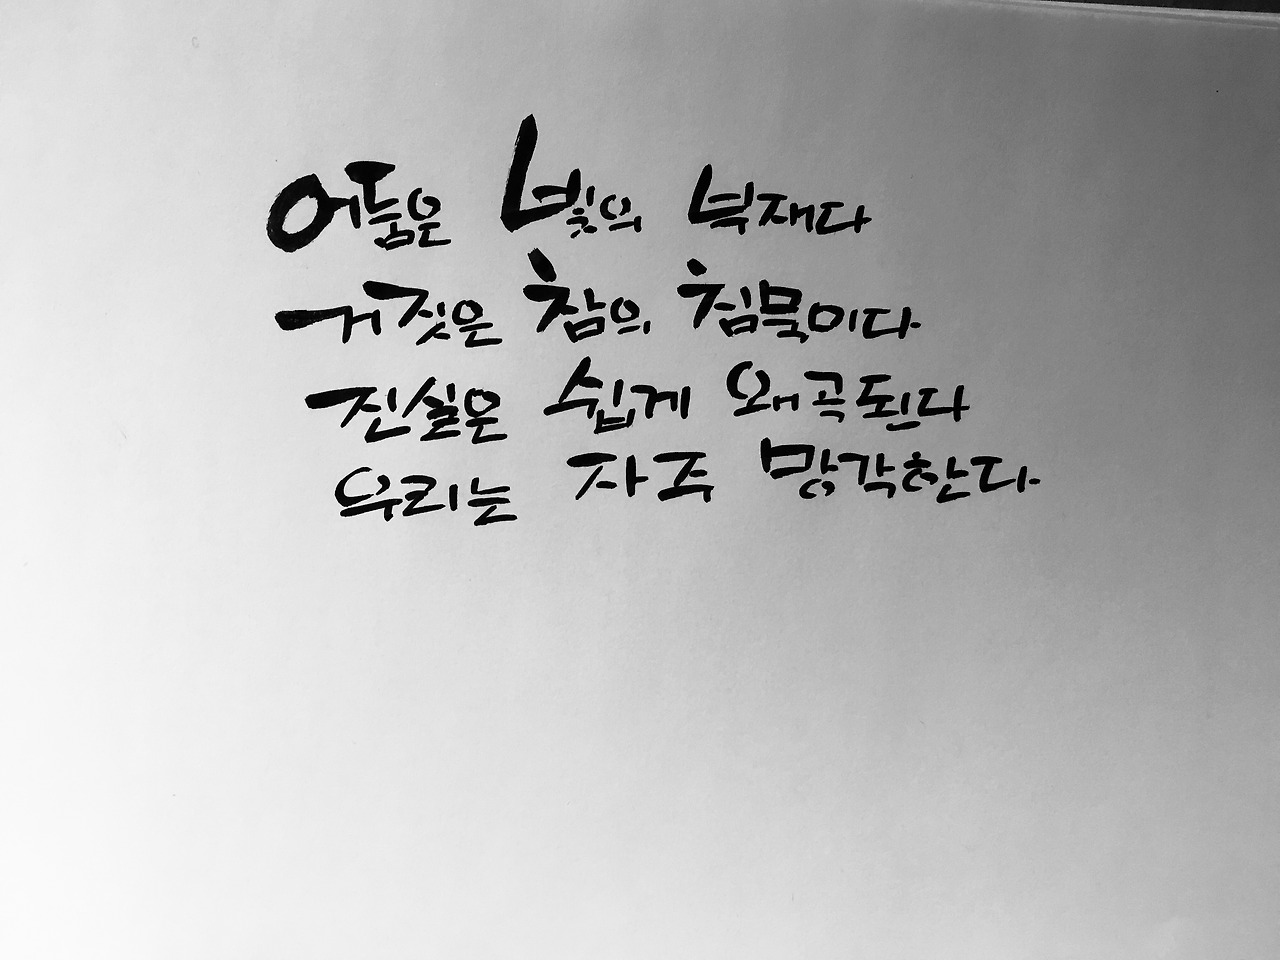 어둠은 빛의 부재다
거짓은 참의 침묵이다
진실은 쉽게 왜곡된다
우리는 자주 망각한다.